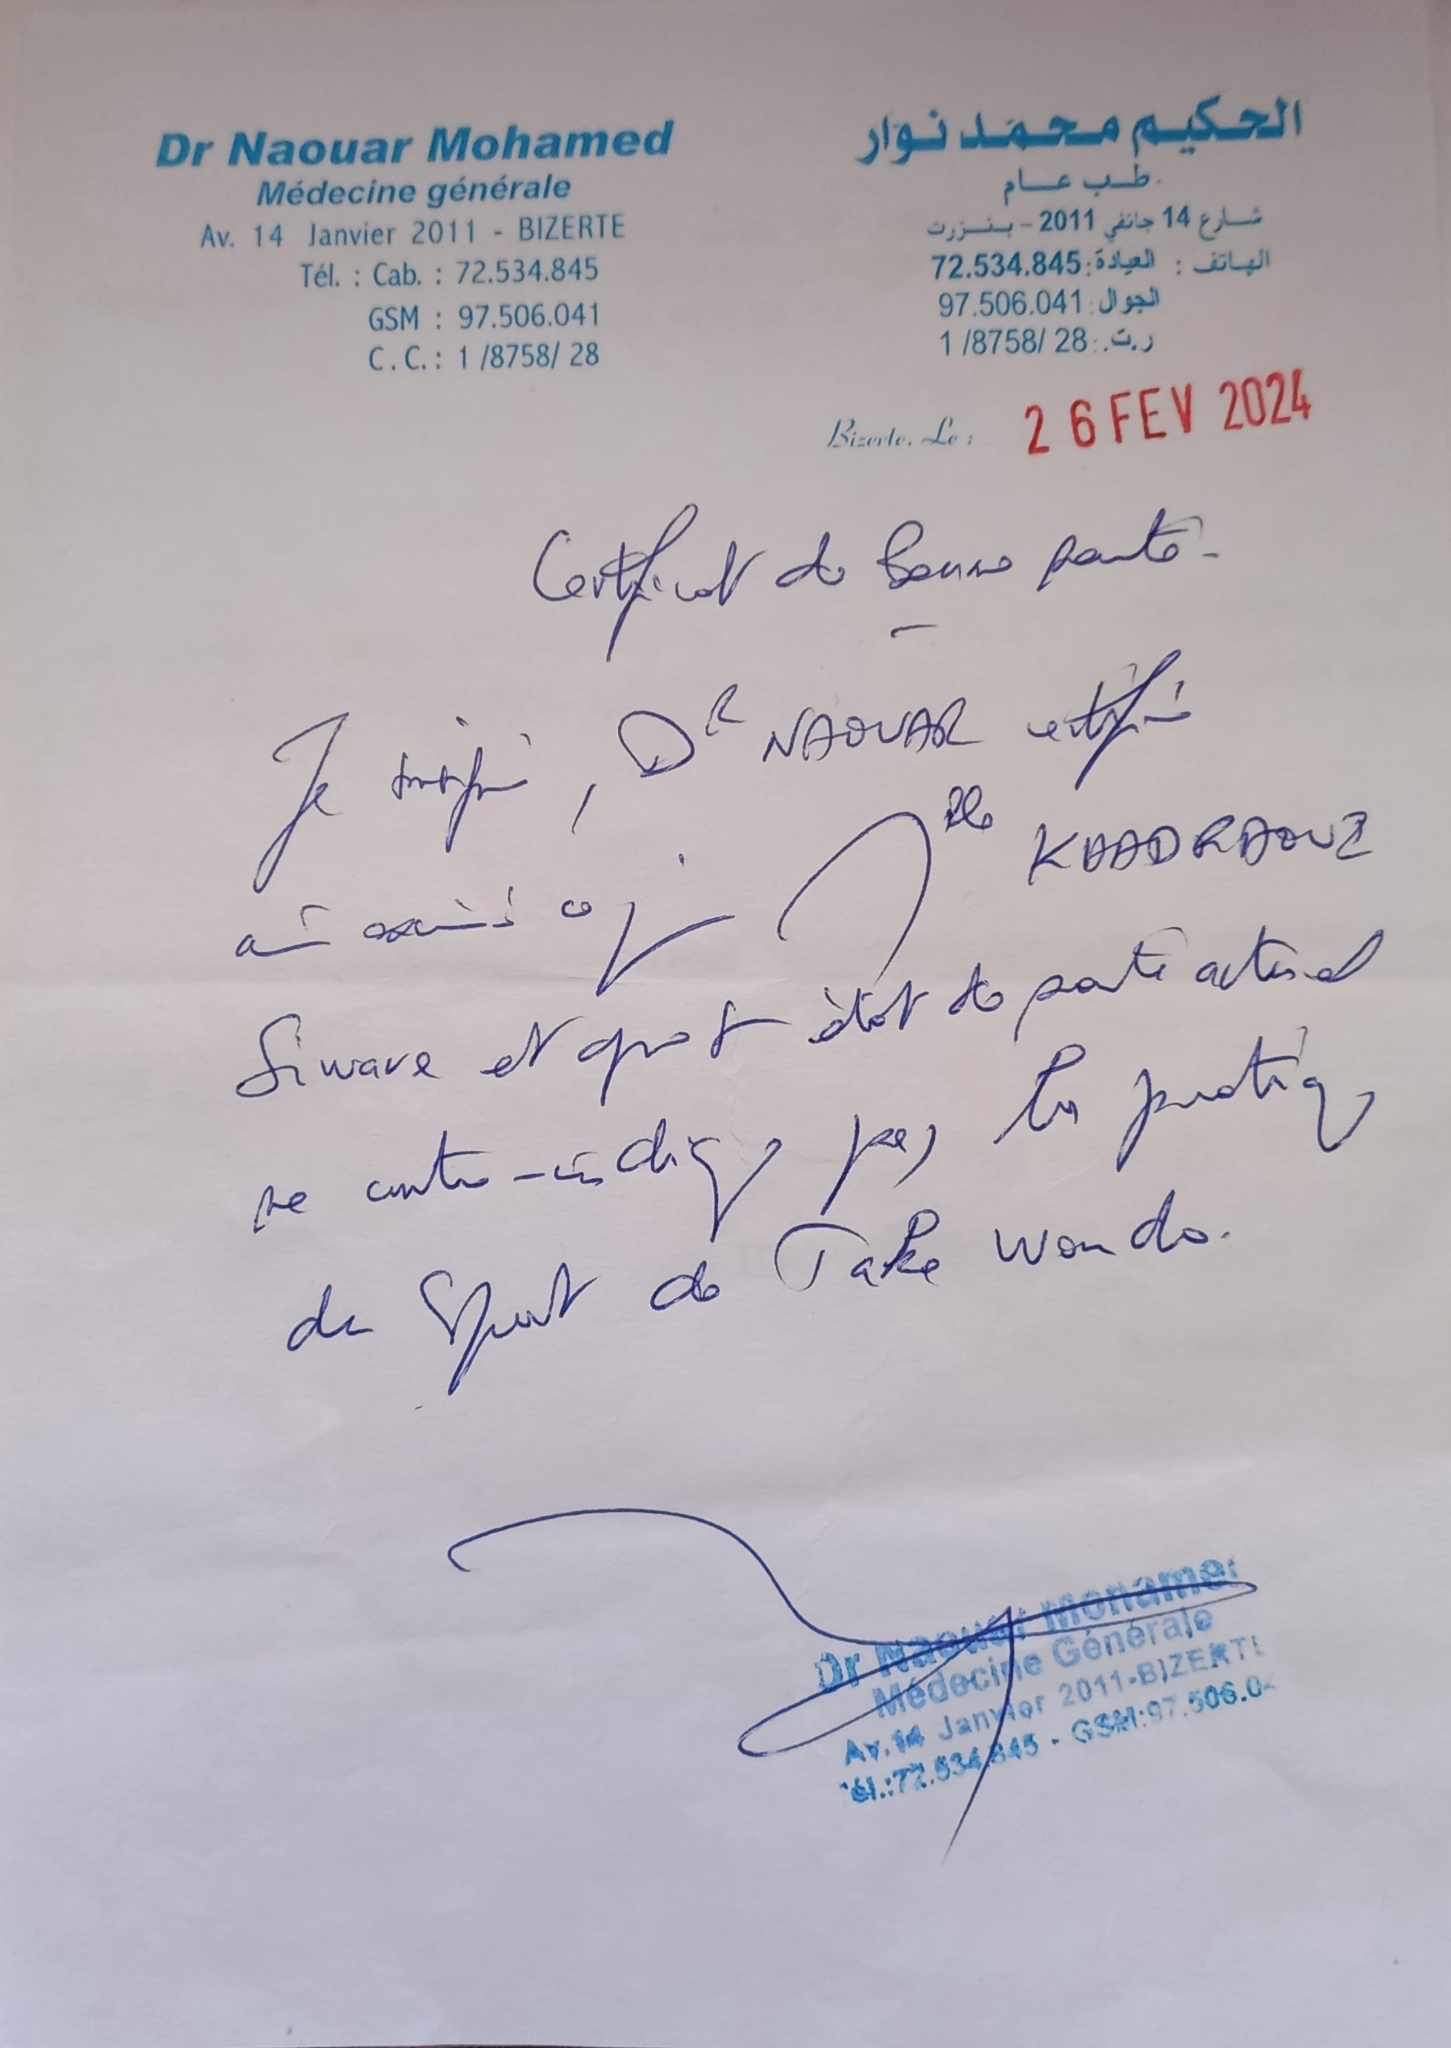 Dr Naouar Mohamed
Médecine générale
Av. 14 Janvier 2011 - BIZERTE
Tél. : Cab. : 72.534.845
GSM : 97.506.041
C.C. : 1 /8758/ 28
الحكيم محمد نوار
طب عام
شارع 14 جانفي 2011 - بنزرت
الهاتف : العيادة : 72.534.845
الجوال : 97.506.041
ر.ت. : 1 /8758/ 28
Bizerte, Le : 26 FEV 2024
Certificat de bonne santé -
Je soussigné, Dr NAOUAR certifie
avoir examiné ce jour Mlle KHADRAOUI
Siwar et que son état de santé actuel
ne contre-indique pas la pratique
du Sport de Take wondo.
Dr Naouar Mohame
Médecine Générale
Av. 14 Janvier 2011-BIZERTE
Tél.:72.534.845 - GSM:97.506.0